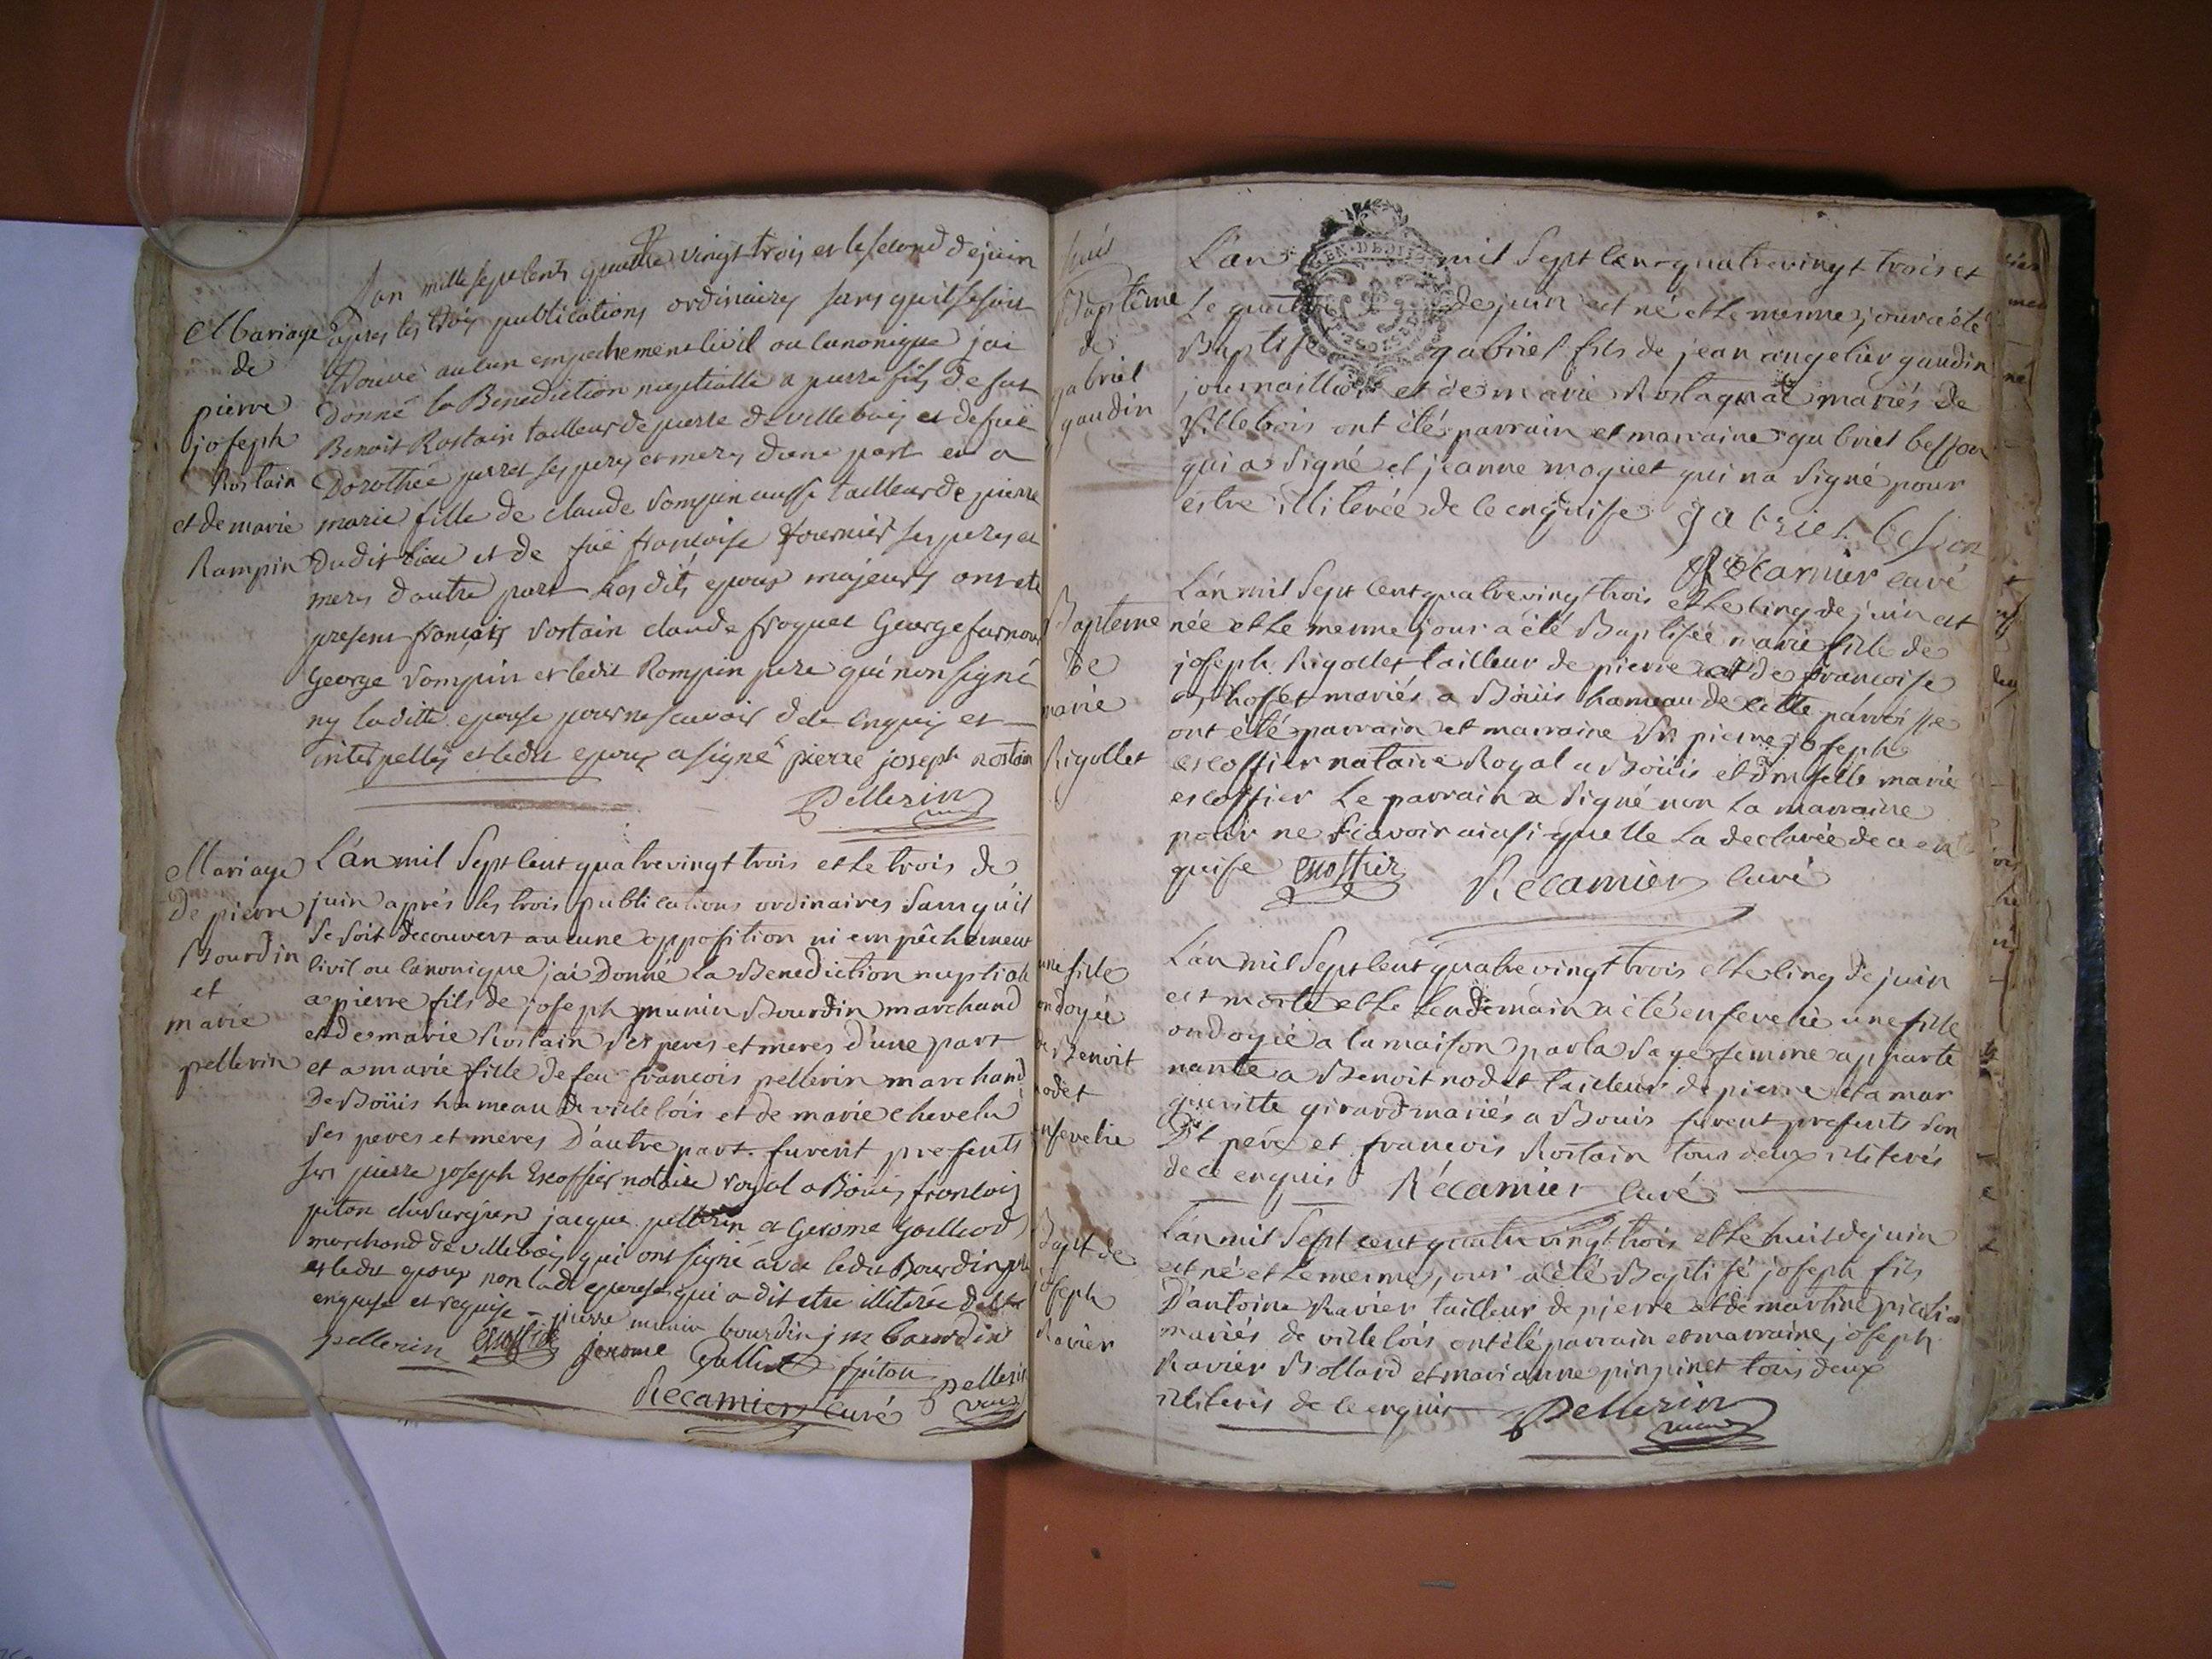 Mariage
de
pierre
joseph
Rostain
et de marie
Rampin
L'an mille sept cents quattre vingt trois et le second de juin
apres les trois publications ordinaires sans quil se soit
trouvé aucun empechement civil ou canonique jai
donné la Benediction nuptialle a pierre fils de feu
Benoit Rostain tailleur de pierre de villebois et de fue
Dorothée perret ses peres et meres dune part et a
marie fille de claude rompin aussi tailleur de pierre
dudit lieu et de fue francoise fournier ses peres et
meres d'autre part les dits epoux majeurs ont eté
presens francois rostain claude froquet George
George rompin et ledit Rompin pere qui non signé
ny laditte epouse pour ne scavoir de ce enquis et
interpellés et ledit epoux a signé pierre joseph rostain
Pellerin
Mariage
de pierre
Bourdin
et
marie
pellerin
L'an mil Sept cent quatrevingt trois et le trois de
juin aprés les trois publications ordinaires sans qu'il
se soit decouvert aucune opposition ni empêchement
civil ou canonique j'ai Donné la Benediction nuptiale
a pierre fils de joseph munin Bourdin marchand
et de marie Rostain ses peres et meres d'une part
et a marie fille de feu francois pellerin marchand
De Boüis hameau de villebois et de marie chevelu
ses peres et meres D'autre part. furent presents
sr pierre joseph Escoffier notaire royal a Bouis, francois
piton chirurgien jacque pellerin et Gerome Gaillord
marchand de villebois qui ont signé avec ledit Bourdin pere
et ledit epoux non ladt epouse qui a dit etre illiterée de ce
enquise et requise pierre munin bourdin j m bourdin
pellerin Escoffier jerome fpiton pellerin
Recamier curé vic
Baptême
de
gabriel
gaudin
L'an mil Sept cent quatrevingt trois et
le quatre de juin est né et le meme jour a été
Baptisé gabriel fils de jean angelier gaudin
journaillier et de marie Rostagnat mariés de
Villebois ont été parrain et marraine gabriel besson
qui a signé et jeanne moguet qui na signé pour
estre illiterée de ce enquise gabriel besson
Récamier curé
Bapteme
de
marie
Rigollet
L'an mil Sept cent quatre vingt trois et le cinq de juin est
née et le meme jour a été Baptisée marie fille de
joseph Rigollet tailleur de pierre et de francoise
mariés a Boüis hameau de cette parroisse
ont été parrain et marraine Sr pierre joseph
escoffier notaire Royal a Boüis et dmselle marie
escoffier le parrain a signé non la marraine
pour ne sçavoir ainsi quelle la declarée de ce en
quise Escoffier Récamier curé
une fille
ondoyée
de Benoit
nodet
ensevelie
L'an mil Sept cent quatre vingt trois et le cinq de juin
est morte et le lendemain a été ensevelie une fille
ondoyée a la maison par la sage femme apparte
nante a Benoit nodet tailleur de pierre et a mar
gueritte girard mariés a Bouis furent presents son
Dt pére et francois Rostain tous deux illiterés
de ce enquis Récamier curé
Bapt de
joseph
Ravier
L'an mil Sept cent quatre vingt trois et le huit de juin
est né et le meme jour a été Baptisé joseph fils
D'antoine Ravier tailleur de pierre et de martine
mariés de villebois ont été parrain et marraine joseph
Ravier Bollard et marianne pinpinet tous deux
illiteris de ce enquis Pellerin
vic